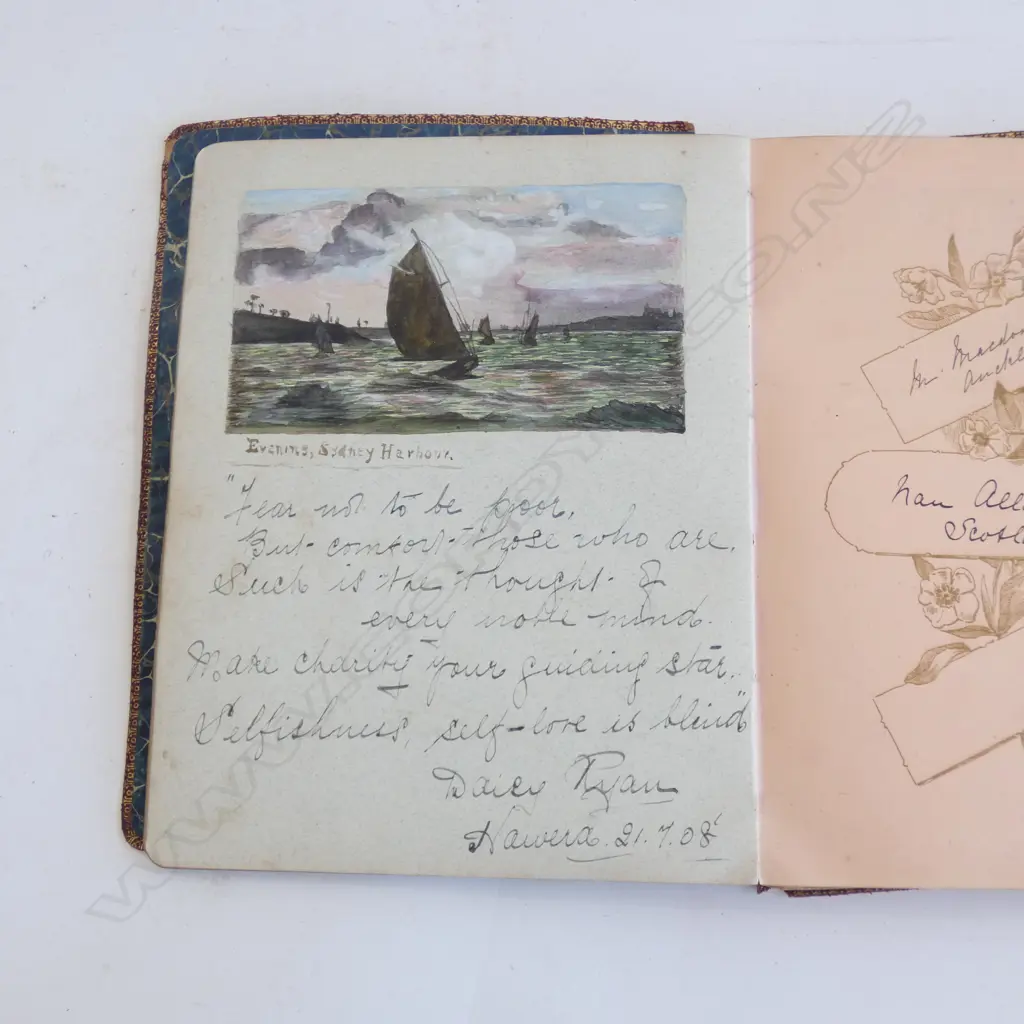 Evening, Sydney Harbour.
"Fear not to be poor,
But comfort those who are.
Such is the thought of
every noble mind.
Make charity your guiding star,
Selfishness, self-love is blind"
Daisy Ryan
Hawera. 21.7.08
Nan